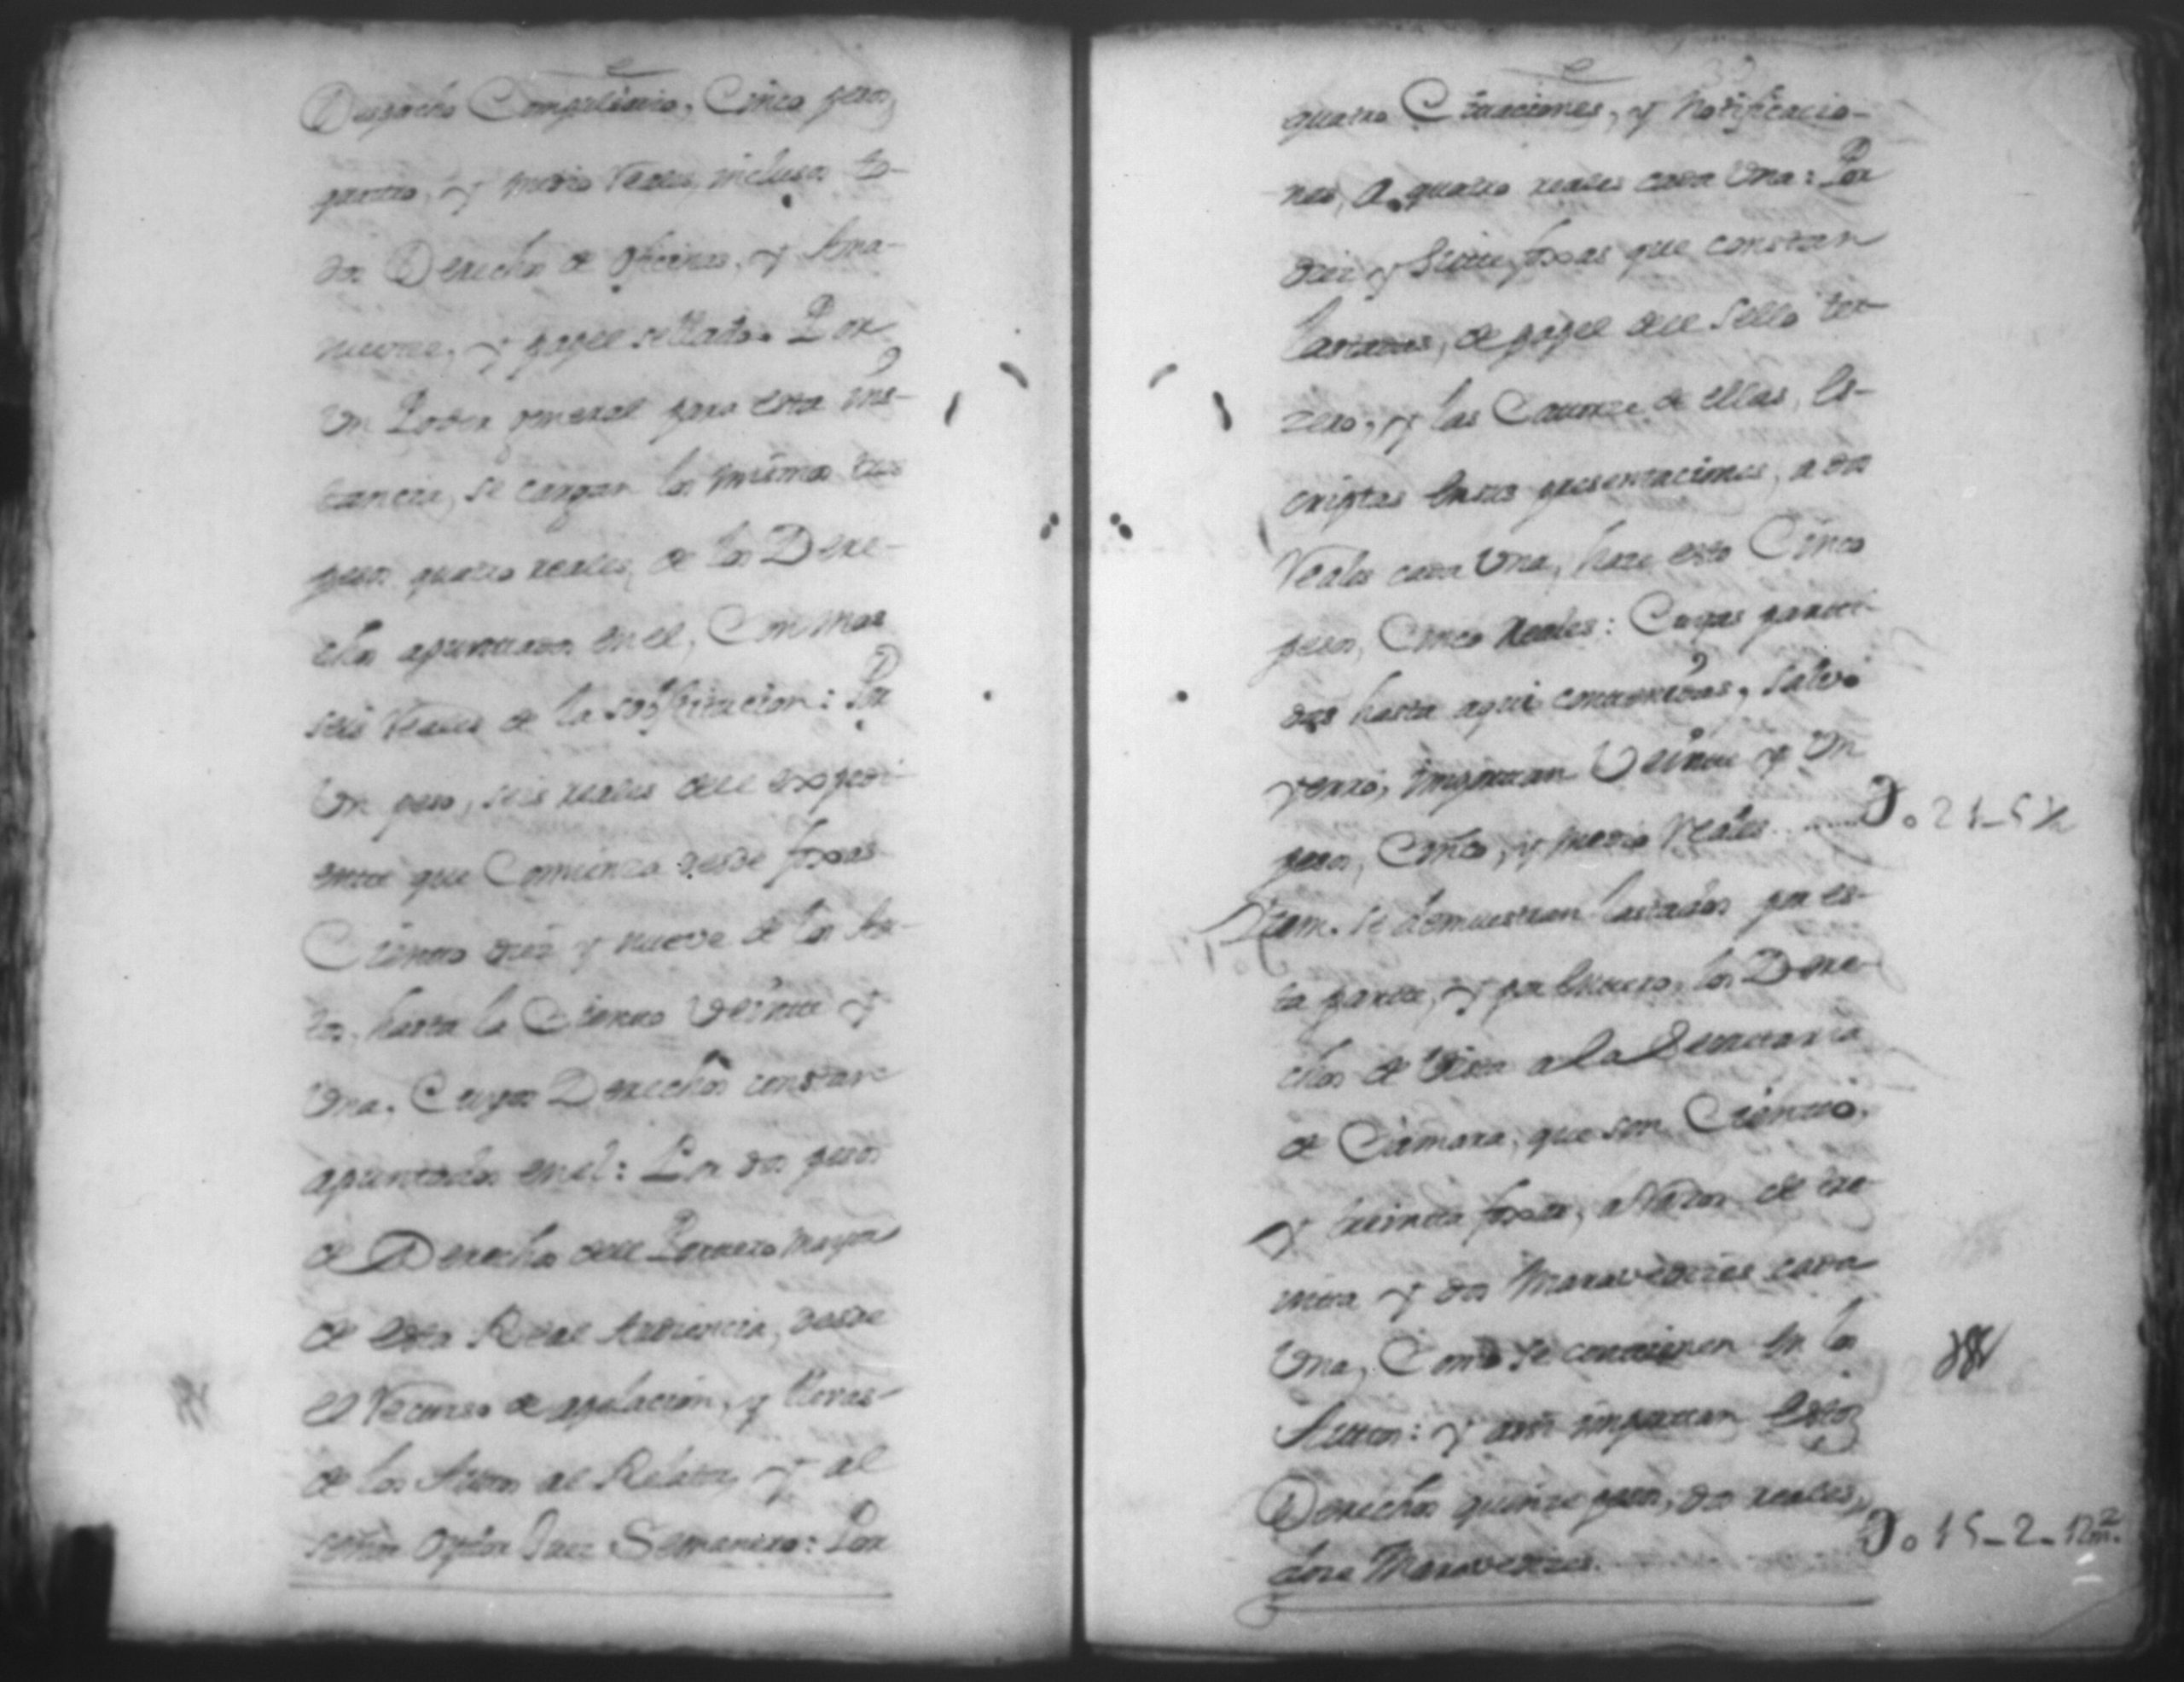 Despacho Compulsorio, Cinco pesos,
quatro, y medio reales, inclusos to-
dos Derechos de oficinas, y Ama-
nuence, y papel sellado. Por
Un Poder general para esta ins-
tancia, se cargan los mismos tres
pesos quatro reales, de los Dere-
chos apuntados en el, Con mas
seis reales de la sobstitucion: Por
Un peso, seis reales del expedi-
ente que Comienza desde foxas
Ciento diez y nueve de los Au-
tos, hasta la Ciento Veinte y
Una, Cuyos Derechos constan
apuntados en el: Por dos pesos
de Derechos del Portero mayor
de esta Real Audiencia, desde
el recurso de apelacion, y llevas-
de los Autos al Relator, y al
señor Oydor Juez Semanero: Por
quatro Citaciones, y Notificacio-
nes, a quatro reales cada Una: Por
diez y Siete foxas que constan
lastadas, de papel del Sello ter-
zero, y las Catorze de ellas, Es-
criptas en sus presentaciones, a dos
reales cada Una, haze esto Cinco
pesos, Cinco reales: Cuyas parti-
das hasta aqui contenidas, salvo
yerro, importan Veinte y Un
pesos, Cinco, y medio reales ........ P. 21-5½
Item. Se demuestran lastados por es-
ta parte, y por entero, los Dere-
chos de Vista a la Secretaria
de Camara, que son Ciento,
y treinta foxas, a razon de tre-
inta y dos Maravedizes cada
Una, Como se contienen en los
Autos: y assi importan estos
Derechos quinze pesos, dos reales,
doze Maravedizes. ........ P. 15-2-12 m.